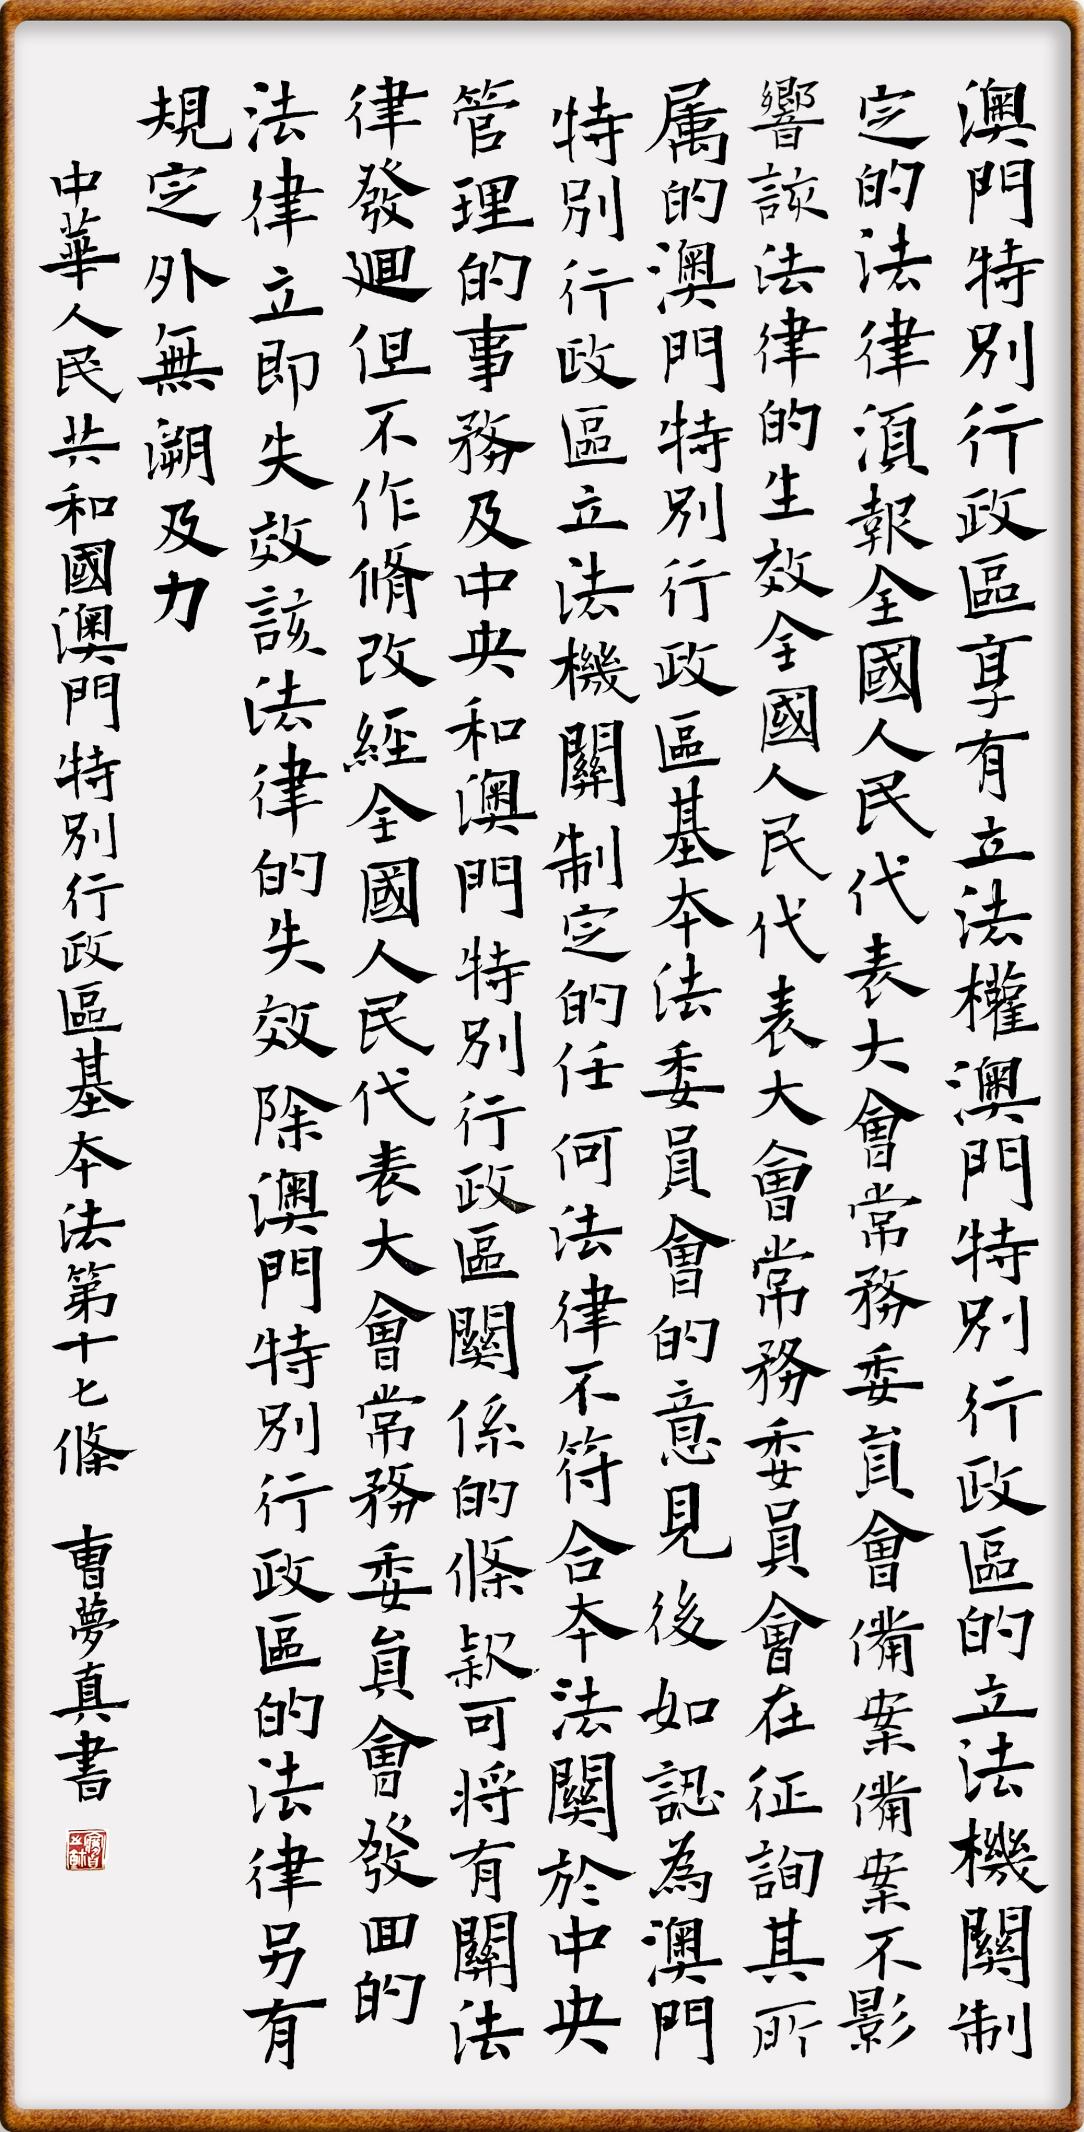 澳門特別行政區享有立法權澳門特別行政區的立法機關制
定的法律湏報全國人民代表大會常務委員會備案備案不影
響該法律的生效全國人民代表大會常務委員會在征詢其所
属的澳門特別行政區基本法委員會的意見後如認為澳門
特別行政區立法機關制定的任何法律不符合本法關於中央
管理的事務及中央和澳門特別行政區關係的條款可将有關法
律發迴但不作脩改經全國人民代表大會常務委員會發回的
法律立即失效該法律的失效除澳門特別行政區的法律另有
規定外無溯及力
中華人民共和國澳門特別行政區基本法第十七條 曹夢真書